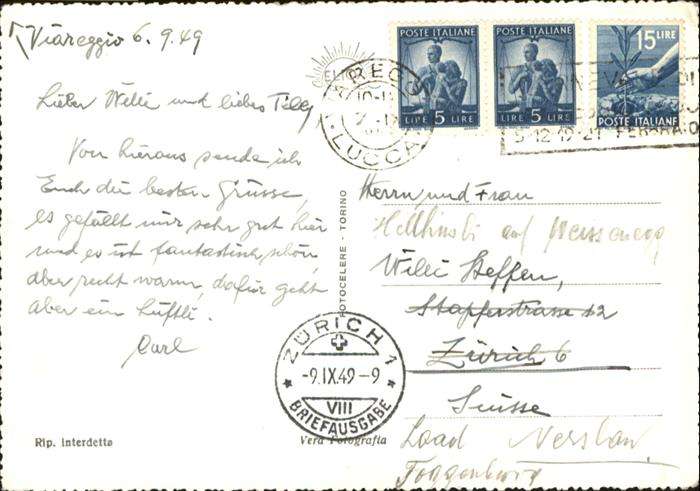 Viareggio 6.9.49
Lieber Willi und liebes Tilly
Von hieraus sende ich
Euch die besten Grüsse,
es gefällt mir sehr gut hier
und es ist fantastisch schön,
aber recht warm, dafür geht
aber ein Lüftli.
Carl
Rip. interdetta
Vera Fotografia
FOTOCELERE - TORINO
POSTE ITALIANE
LIRE 5 LIRE
POSTE ITALIANE
LIRE 5 LIRE
15 LIRE
POSTE ITALIANE
LUCCA
Herrn und Frau
auf
Willi Steffen,
Stapferstrasse 12
Zürich 6
Suisse
Toggenburg
ZÜRICH 1
-9.IX.49-9
VIII
BRIEFAUSGABE